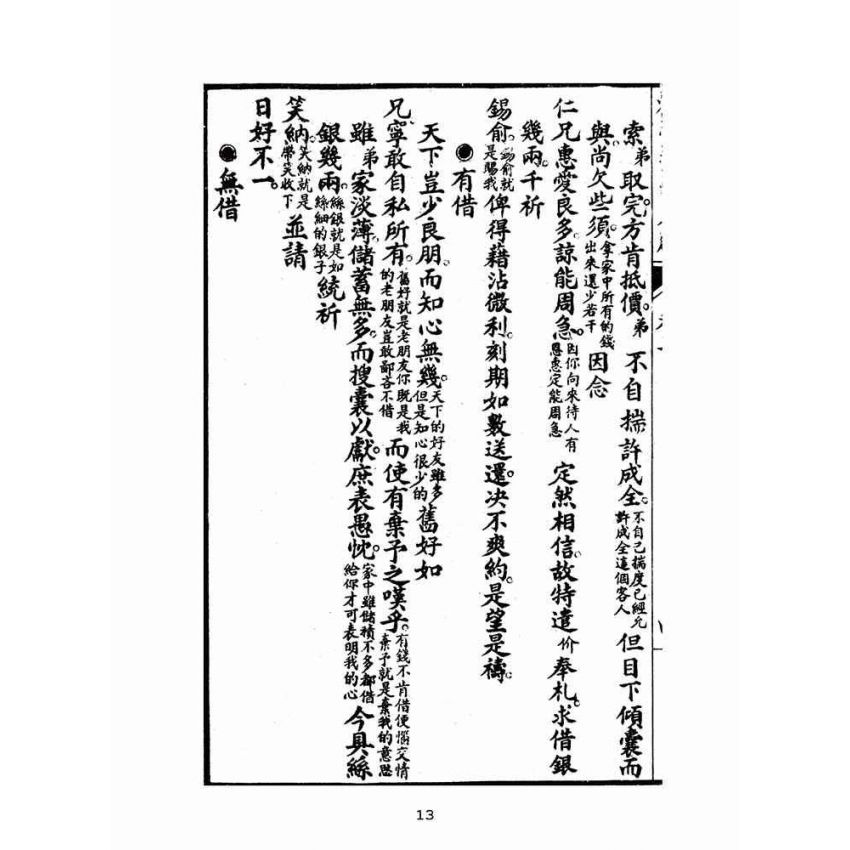 索弟取完。方肯抵價。弟不自揣許成全。不自己揣度已經允許成全這個客人但目下傾囊而
與。尚欠些須。拿家中所有的錢出來還少若干因念
仁兄惠愛良多。諒能周急。因你向來待人有恩惠定能周急定然相信。故特遣价奉札。求借銀
幾兩。千祈
錫俞。錫俞就是賜我俾得藉沾微利。刻期如數送還。決不爽約。是望是禱。
●有借
天下豈少良朋。而知心無幾。天下的好友雖多但是知心很少的舊好如
兄。寧敢自私所有。舊好就是老朋友你既是我的老朋友豈敢鄙吝不借而使有棄予之嘆乎。有錢不肯借便惱交情棄予就是棄我的意思
雖弟家淡薄。儲蓄無多。而搜囊以獻。庶表愚忱。家中雖儲積不多都借給你才可表明我的心今具絲
銀幾兩。絲銀就是如絲細的銀子統祈
笑納。笑納就是帶笑收下並請
日好不一。
●無借
13